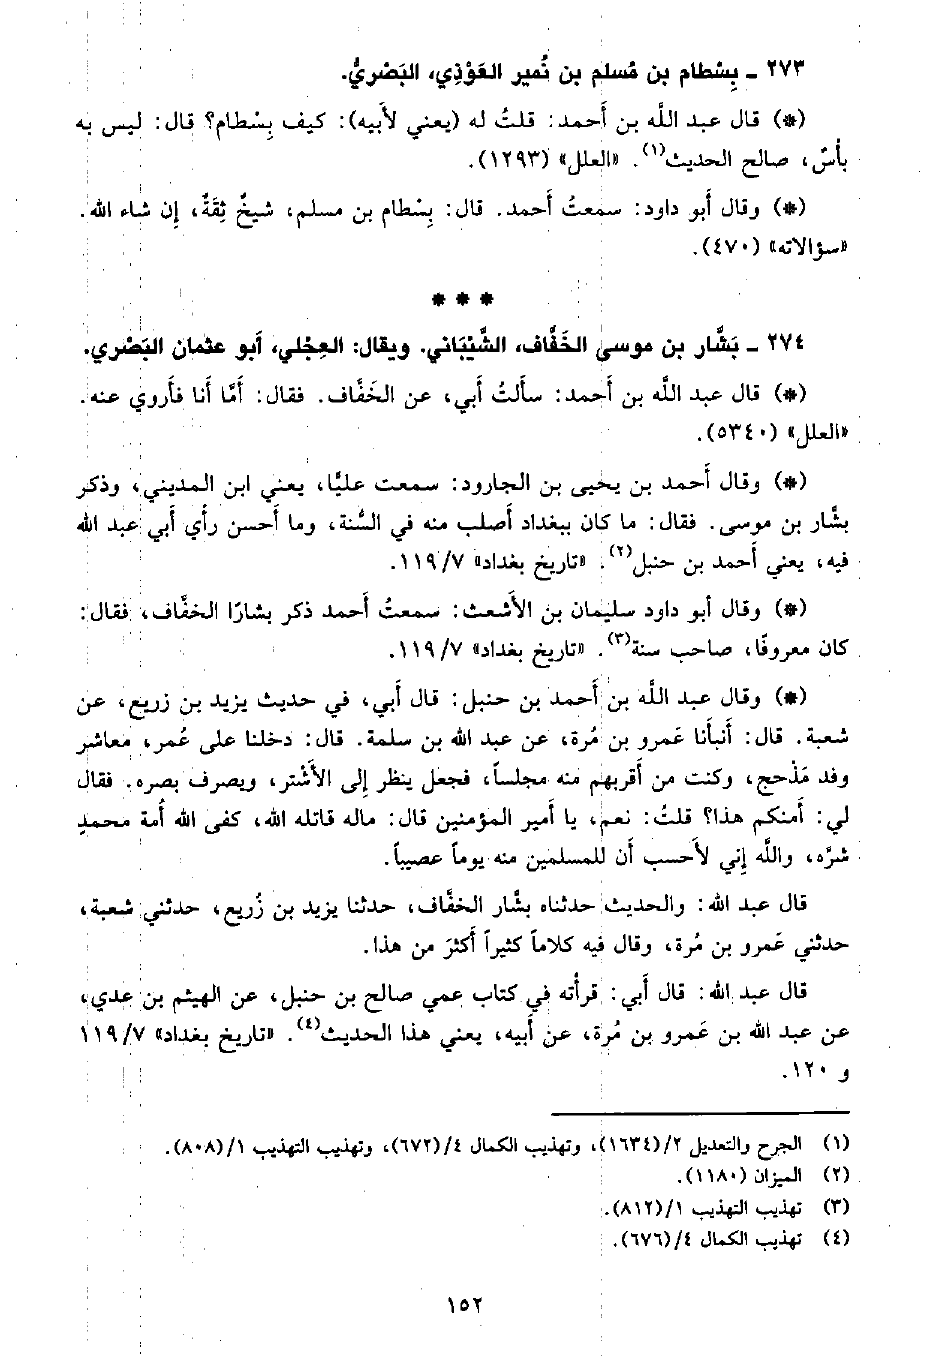 ٢٧٣ ـ بِسْطام بن مُسلم بن نُمير العَوْذِي، البَصْريُّ.
(*) قال عبد اللَّه بن أَحمد: قلتُ له (يعني لأَبيه): كيف بِسْطام؟ قال: ليس به
بأْسٌ، صالح الحديث(١). «العلل» (١٢٩٣).
(*) وقال أَبو داود: سمعتُ أحمد. قال: بِسْطام بن مسلم، شيخٌ ثِقَةٌ، إِن شاء الله.
«سؤالاته» (٤٧٠).
* * *
٢٧٤ ـ بَشَّار بن موسى الخَفَّاف، الشَّيْبَاني. ويقال: العِجْلي، أَبو عثمان البَصْري.
(*) قال عبد اللَّه بن أَحمد: سأَلتُ أَبي، عن الخَفَّاف. فقال: أَمَّا أَنا فأَروي عنه.
«العلل» (٥٣٤٠).
(*) وقال أَحمد بن يحيى بن الجارود: سمعت عليًّا، يعني ابن المديني، وذكر
بشَّار بن موسى. فقال: ما كان ببغداد أَصلب منه في السُّنة، وما أَحسن رأي أَبي عبد الله
فيه، يعني أَحمد بن حنبل(٢). «تاريخ بغداد» ١١٩/٧.
(*) وقال أَبو داود سليمان بن الأَشعث: سمعتُ أَحمد ذكر بشارًا الخفَّاف، فقال:
كان معروفًا، صاحب سنة(٣). «تاريخ بغداد» ١١٩/٧.
(*) وقال عبد اللَّه بن أَحمد بن حنبل: قال أَبي، في حديث يزيد بن زريع، عن
شعبة. قال: أَنبأَنا عَمرو بن مُرة، عن عبد الله بن سلمة. قال: دخلنا على عُمر، معاشر
وفد مَذْحج، وكنت من أَقربهم منه مجلساً، فجعل ينظر إِلى الأَشْتر، ويصرف بصره. فقال
لي: أَمنكم هذا؟ قلتُ: نعم، يا أَمير المؤمنين قال: ماله قاتله الله، كفى الله أُمة محمدٍ
شرَّه، واللَّه إِني لأَحسب أَن للمسلمين منه يوماً عصيباً.
قال عبد الله: والحديث حدثناه بشَّار الخفَّاف، حدثنا يزيد بن زُريع، حدثني شعبة،
حدثني عَمرو بن مُرة، وقال فيه كلاماً كثيراً أَكثرَ من هذا.
قال عبد الله: قال أَبي: قرأته في كتاب عمي صالح بن حنبل، عن الهيثم بن عدي،
عن عبد الله بن عَمرو بن مُرة، عن أَبيه، يعني هذا الحديث(٤). «تاريخ بغداد» ١١٩/٧
و ١٢٠.
(١) الجرح والتعديل ٢/(١٦٣٤)، وتهذيب الكمال ٤/(٦٧٢)، وتهذيب التهذيب ١/(٨٠٨).
(٢) الميزان (١١٨٠).
(٣) تهذيب التهذيب ١/(٨١٢).
(٤) تهذيب الكمال ٤/(٦٧٦).
١٥٢